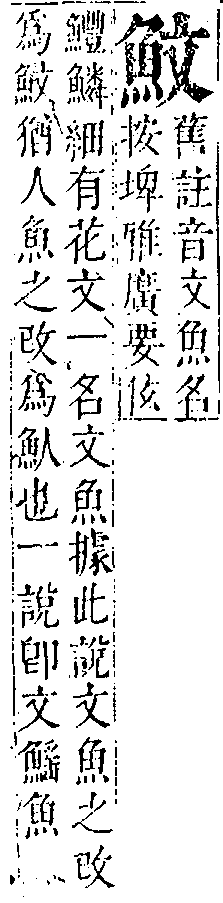 魰
舊註音文魚名
按埤雅廣要似
鱧鱗細有花文一名文魚據此說文魚之改
爲魰猶人魚之改爲魜也一說卽文鰩魚